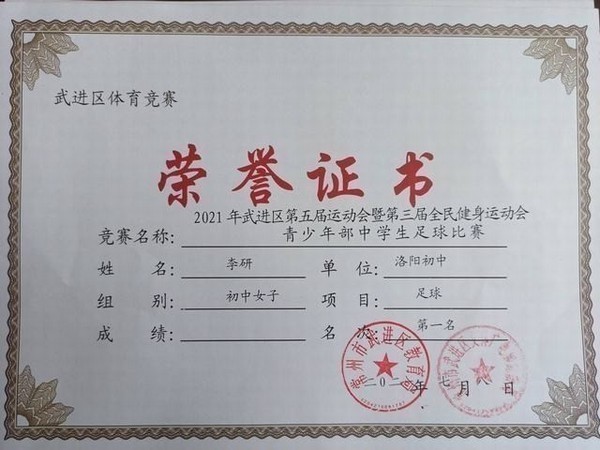 武进区体育竞赛
荣誉证书
2021年武进区第五届运动会暨第三届全民健身运动会
竞赛名称: 青少年部中学生足球比赛
姓 名: 李研 单 位: 洛阳初中
组 别: 初中女子 项 目: 足球
成 绩: 名 次: 第一名
常州市武进区教育局
年七月 日